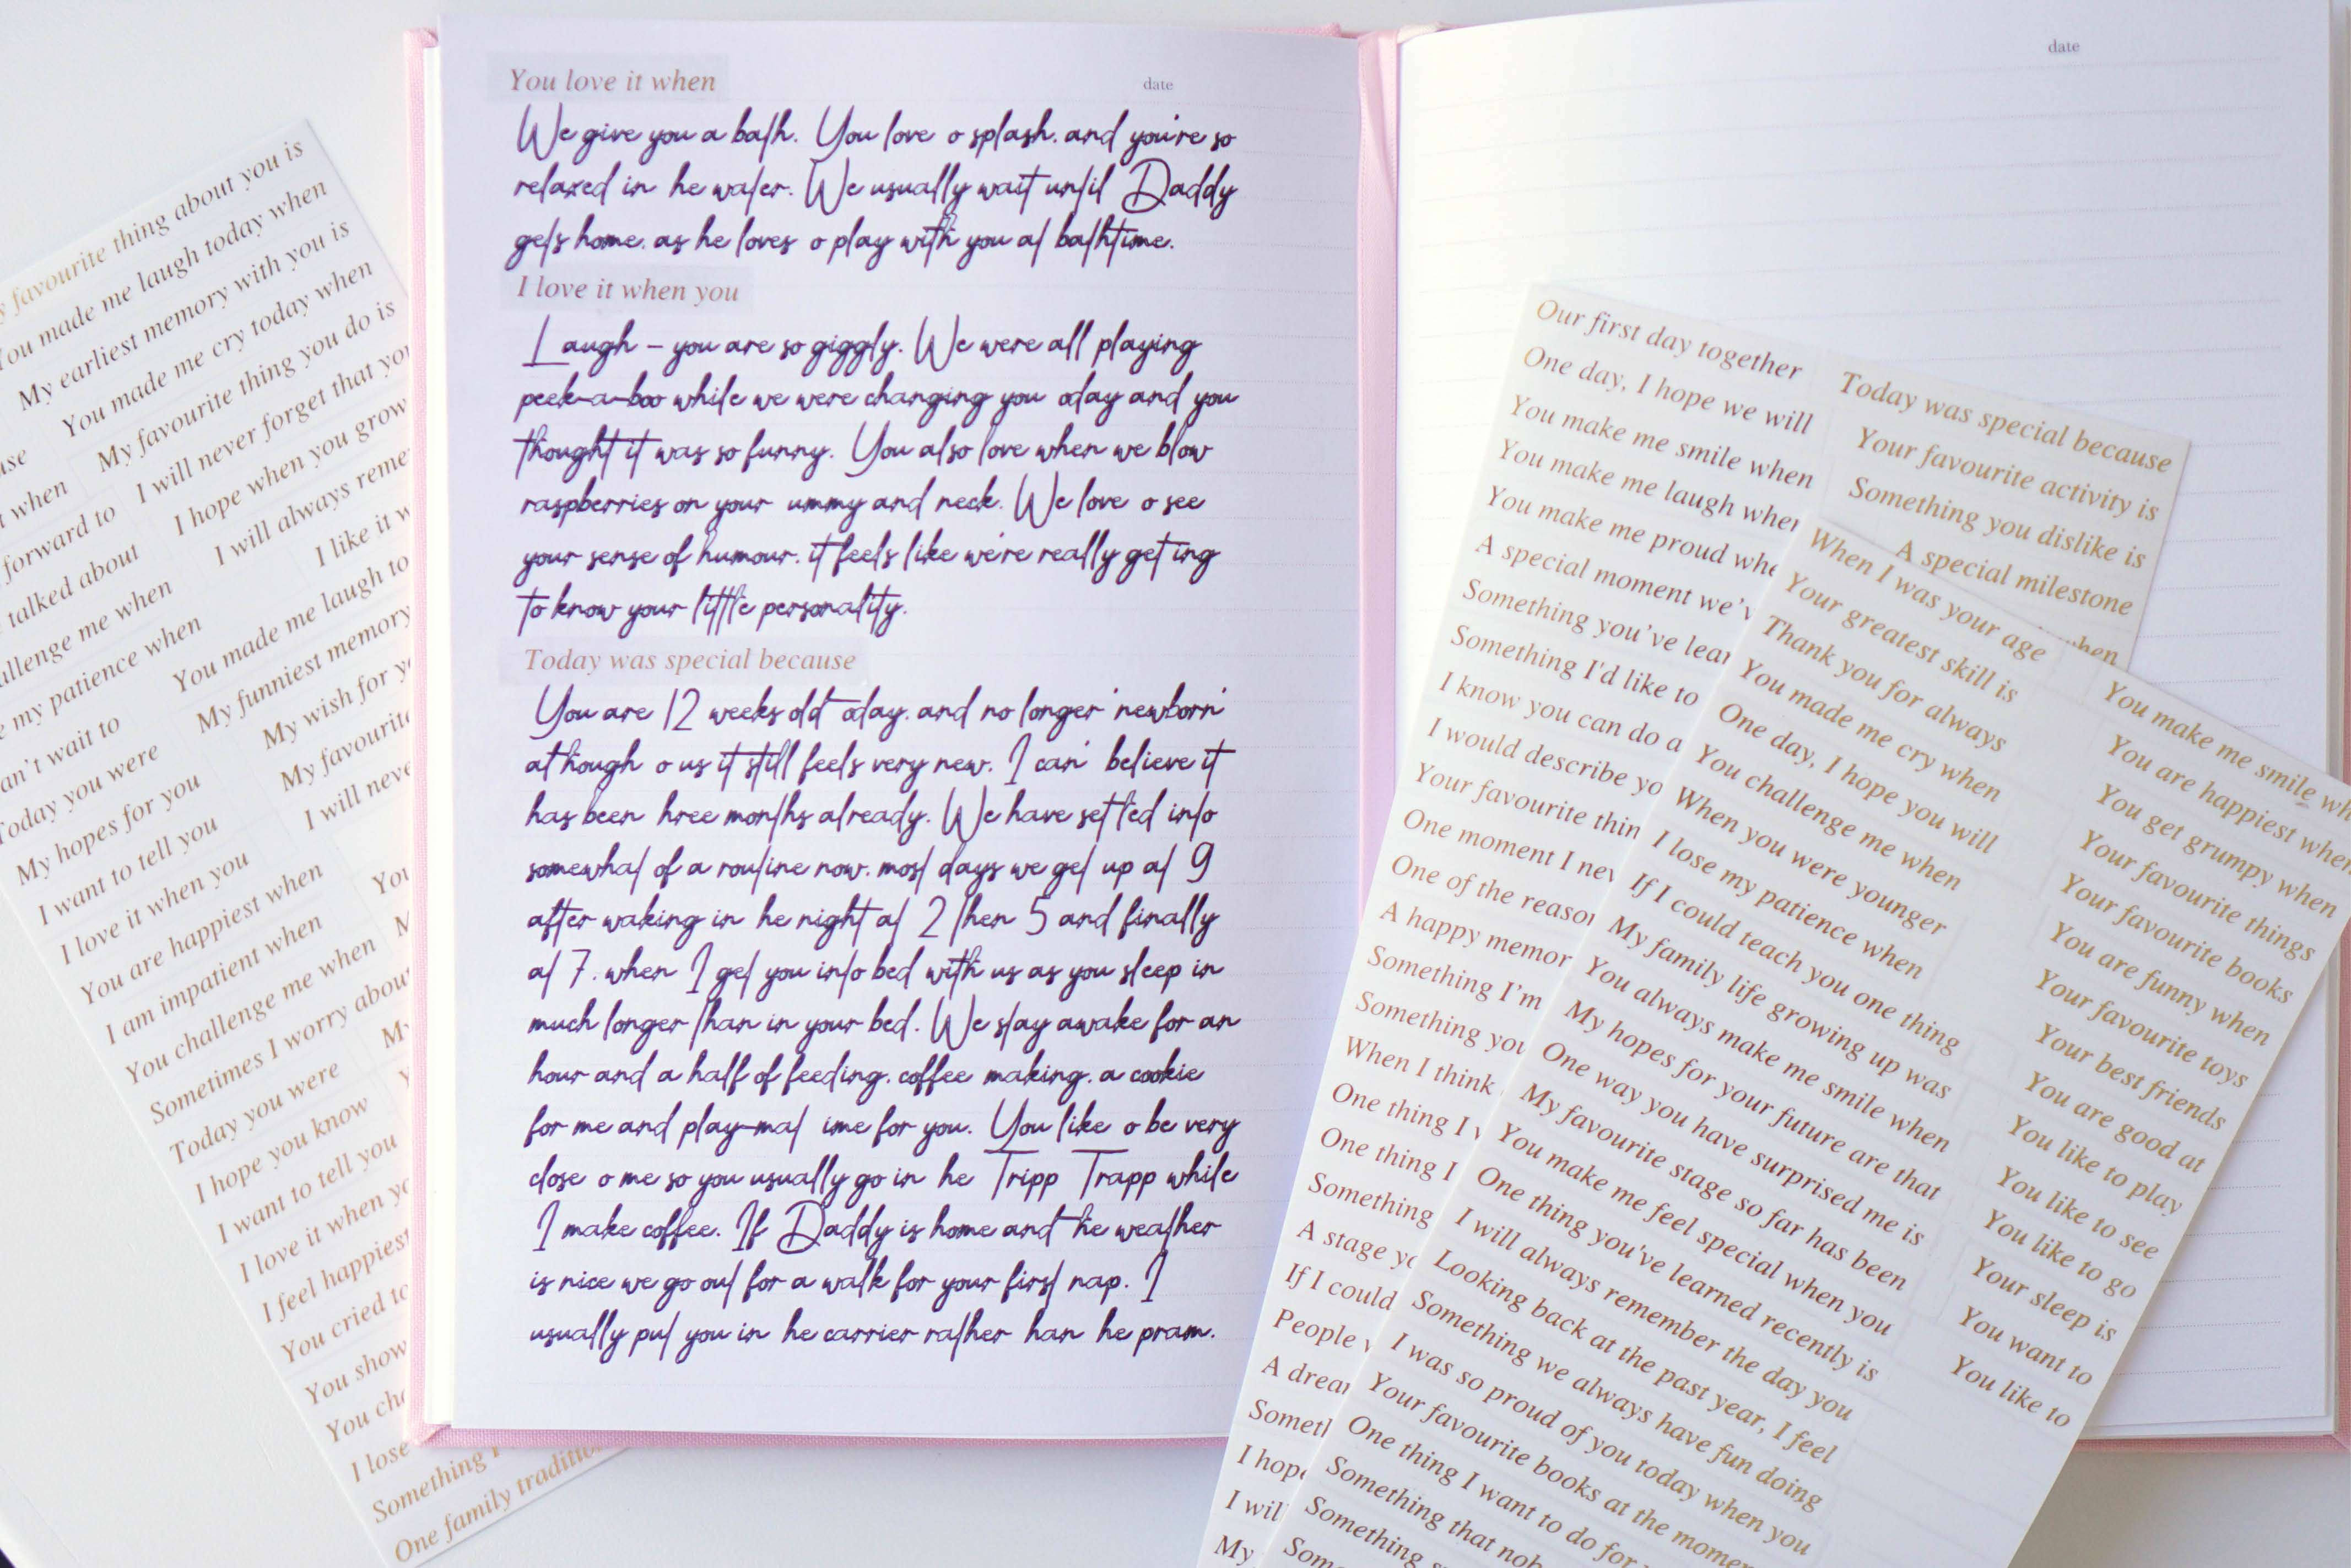 favourite thing about you is
You made me laugh today when
My earliest memory with you is
You made me cry today when
My favourite thing you do is
I will never forget that you
I hope when you grow
I will always reme
I like it w
when
forward to
talked about
challenge me when
my patience when
can't wait to
Today you were
My hopes for you
I want to tell you
I love it when you
You are happiest when
I am impatient when
You challenge me when
Sometimes I worry about
Today you were
I hope you know
I want to tell you
I love it when yo
I feel happiest
You cried to
You show
You cha
I lose
Something I
One family tradition
You made me laugh to
My funniest memory
My wish for yo
My favourite
I will neve
You
My
date
You love it when
We give you a bath. You love o splash. and you're so
relaxed in he water. We usually wait until Daddy
gets home. as he loves o play with you at bathtime.
I love it when you
Laugh - you are so giggly. We were all playing
peek-a-boo while we were changing you oday and you
thought it was so funny. You also love when we blow
raspberries on your ummy and neck. We love o see
your sense of humour. it feels like we're really get ing
to know your little personality.
Today was special because
You are 12 weeks old oday. and no longer 'newborn'
although o us it still feels very new. I can' believe it
has been hree months already. We have settled into
somewhat of a routine now. most days we get up at 9
after waking in he night at 2 then 5 and finally
at 7. when I get you into bed with us as you sleep in
much longer than in your bed. We stay awake for an
hour and a half of feeding. coffee making. a cookie
for me and play-mat ime for you. You like o be very
close o me so you usually go in he Tripp Trapp while
I make coffee. If Daddy is home and the weather
is nice we go out for a walk for your first nap. I
usually put you in he carrier rather han he pram.
date
Our first day together
One day, I hope we will
You make me smile when
You make me laugh when
You make me proud whe
A special moment we'v
Something you've lear
Something I'd like to
I know you can do a
I would describe yo
Your favourite thin
One moment I nev
One of the reason
A happy memor
Something I'm
Something you
When I think
One thing I w
One thing I
Something
A stage yo
If I could
People w
A drea
Somet
I hope
I wil
My
Today was special because
Your favourite activity is
Something you dislike is
A special milestone
when
When I was your age
Your greatest skill is
Thank you for always
You made me cry when
One day, I hope you will
You challenge me when
When you were younger
I lose my patience when
If I could teach you one thing
My family life growing up was
You always make me smile when
My hopes for your future are that
One way you have surprised me is
My favourite stage so far has been
You make me feel special when you
One thing you've learned recently is
I will always remember the day you
Looking back at the past year, I feel
Something we always have fun doing
I was so proud of you today when you
Your favourite books at the momen
One thing I want to do for
Something that nob
Something
Some
You make me smile wh
You are happiest when
You get grumpy when
Your favourite things
Your favourite books
You are funny when
Your favourite toys
Your best friends
You are good at
You like to play
You like to see
You like to go
Your sleep is
You want to
You like to